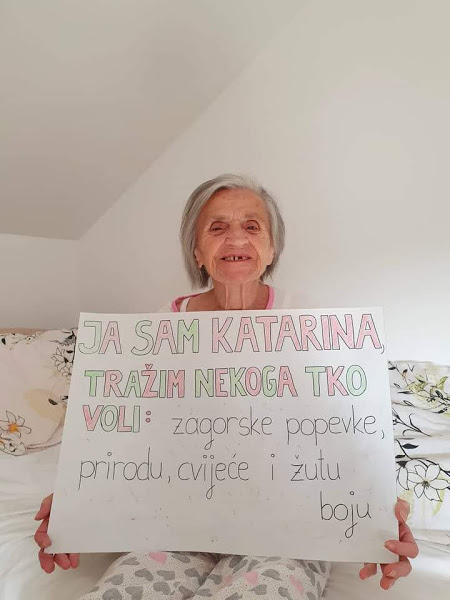 JA SAM KATARINA,
TRAŽIM NEKOGA TKO
VOLI: zagorske popevke,
prirodu, cvijeće i žutu
boju